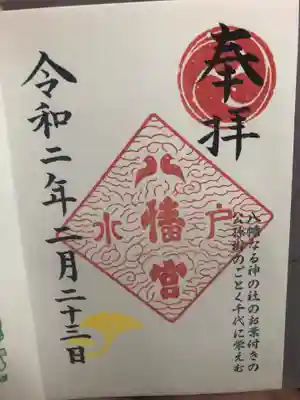 奉拝
八幡なる神の社のお葉付きの
公孫樹のごとく千代に栄えむ
水戸
八幡宮
令和二年二月二十三日